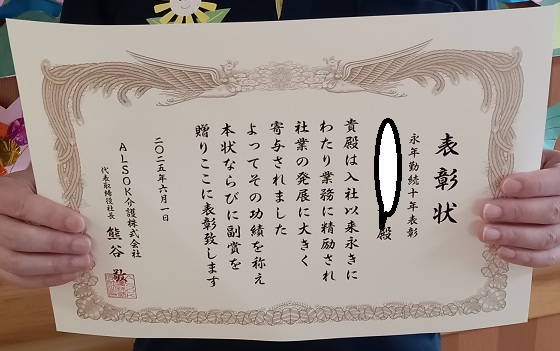 表彰状
永年勤続十年表彰
殿
貴殿は入社以来永きに
わたり業務に精励され
社業の発展に大きく
寄与されました
よってその功績を称え
本状ならびに副賞を
贈りここに表彰致します
二〇二五年六月一日
ALSOK介護株式会社
代表取締役社長 熊谷 敬